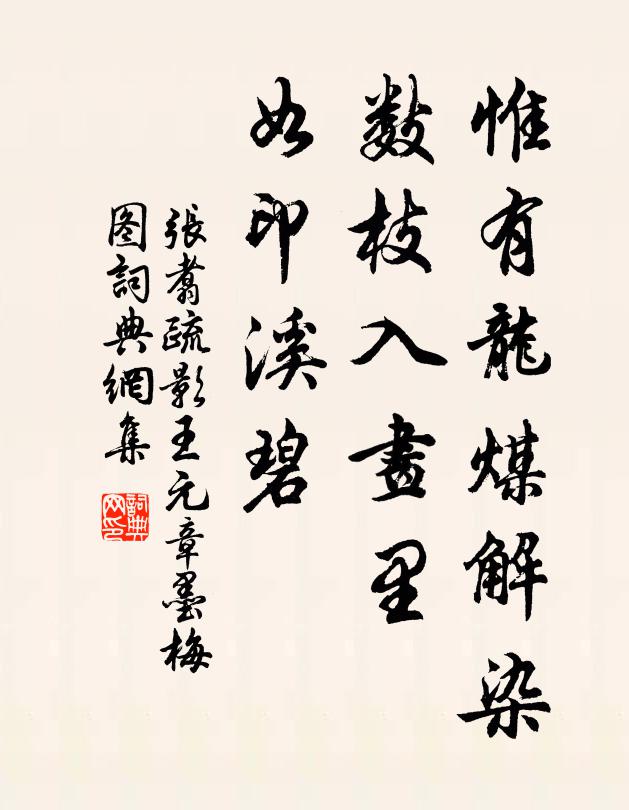 惟有龍煤解染
數枝入畫里
如印溪碧
張翥疏影王元章墨梅
图詞典網集
詞典
网印